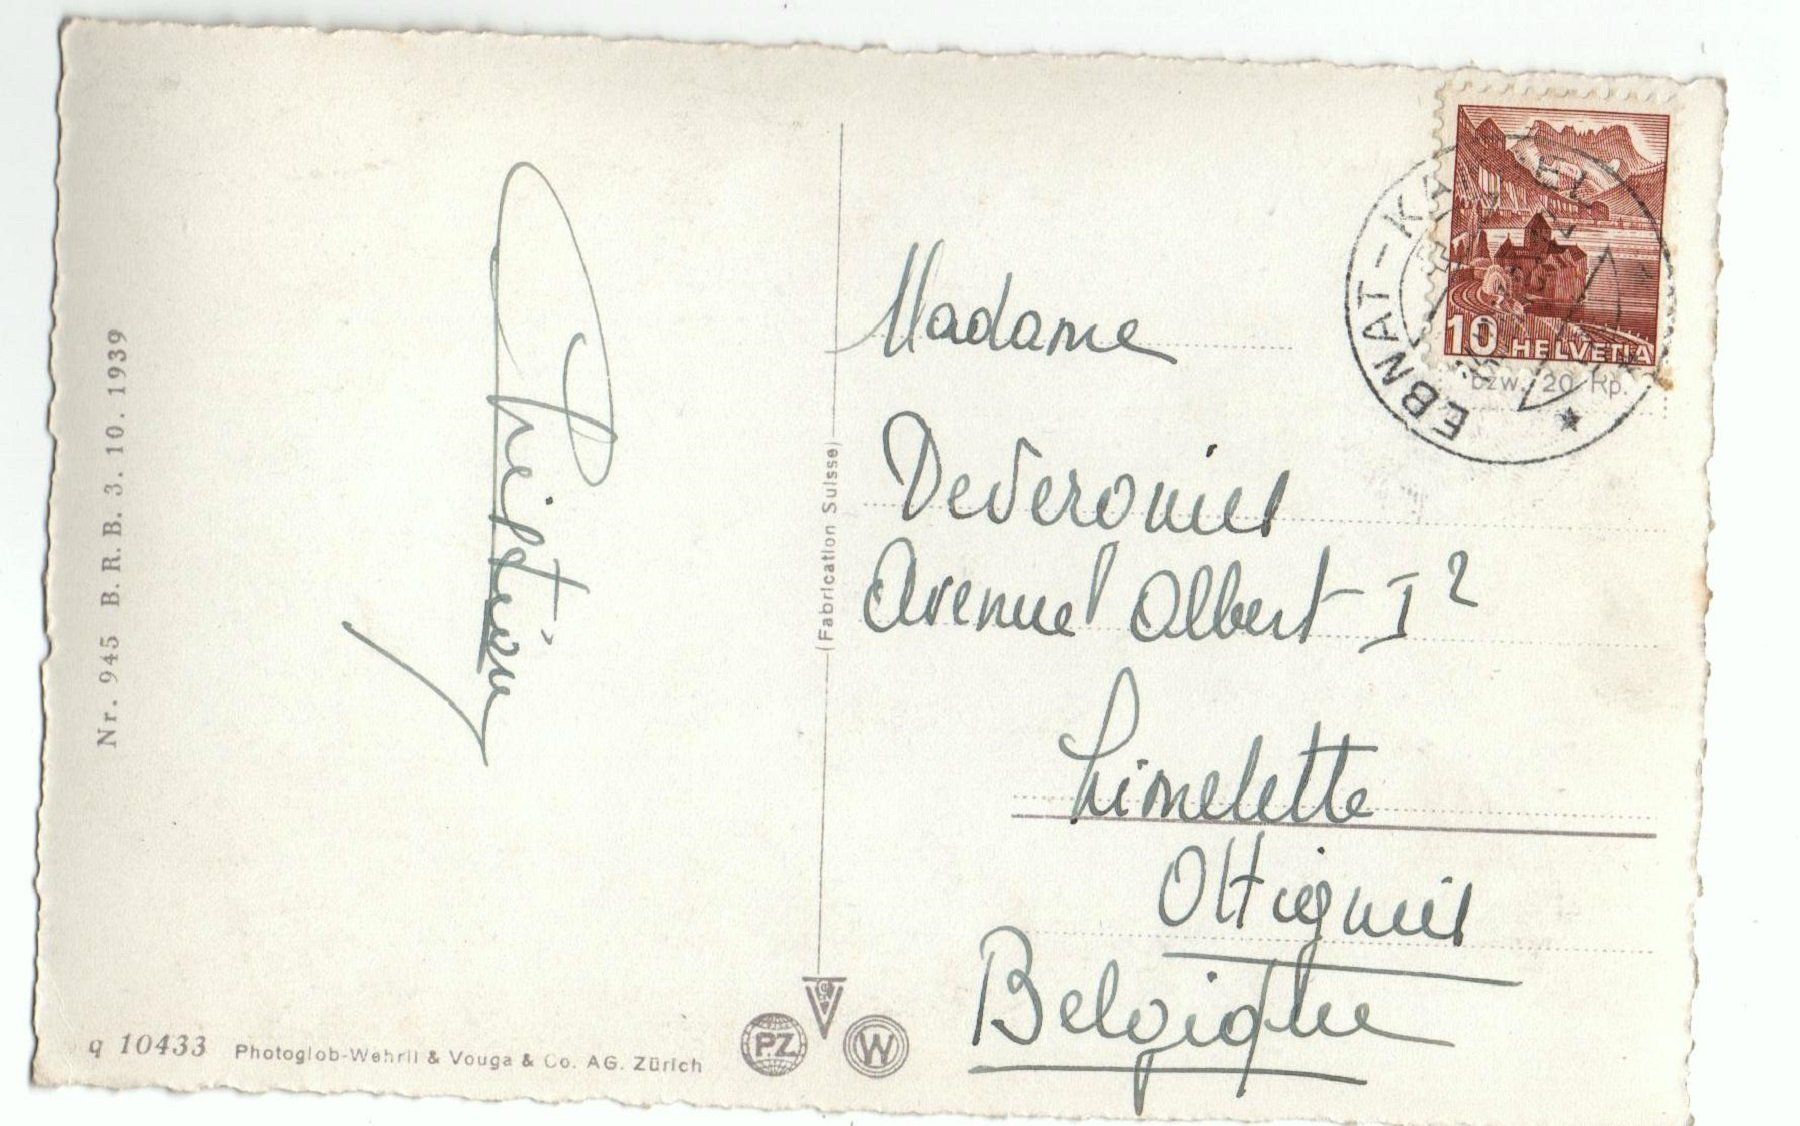 Nr. 945 B. R. B. 3. 10. 1939
Christiane
q 10433 Photoglob-Wehrli & Vouga & Co. AG. Zürich
(Fabrication Suisse)
PZ
W
EBNAT-KA
10 HELVETIA
bzw. 20 Rp.
Madame
Avenue Albert I
Limelette
Ottignies
Belgique